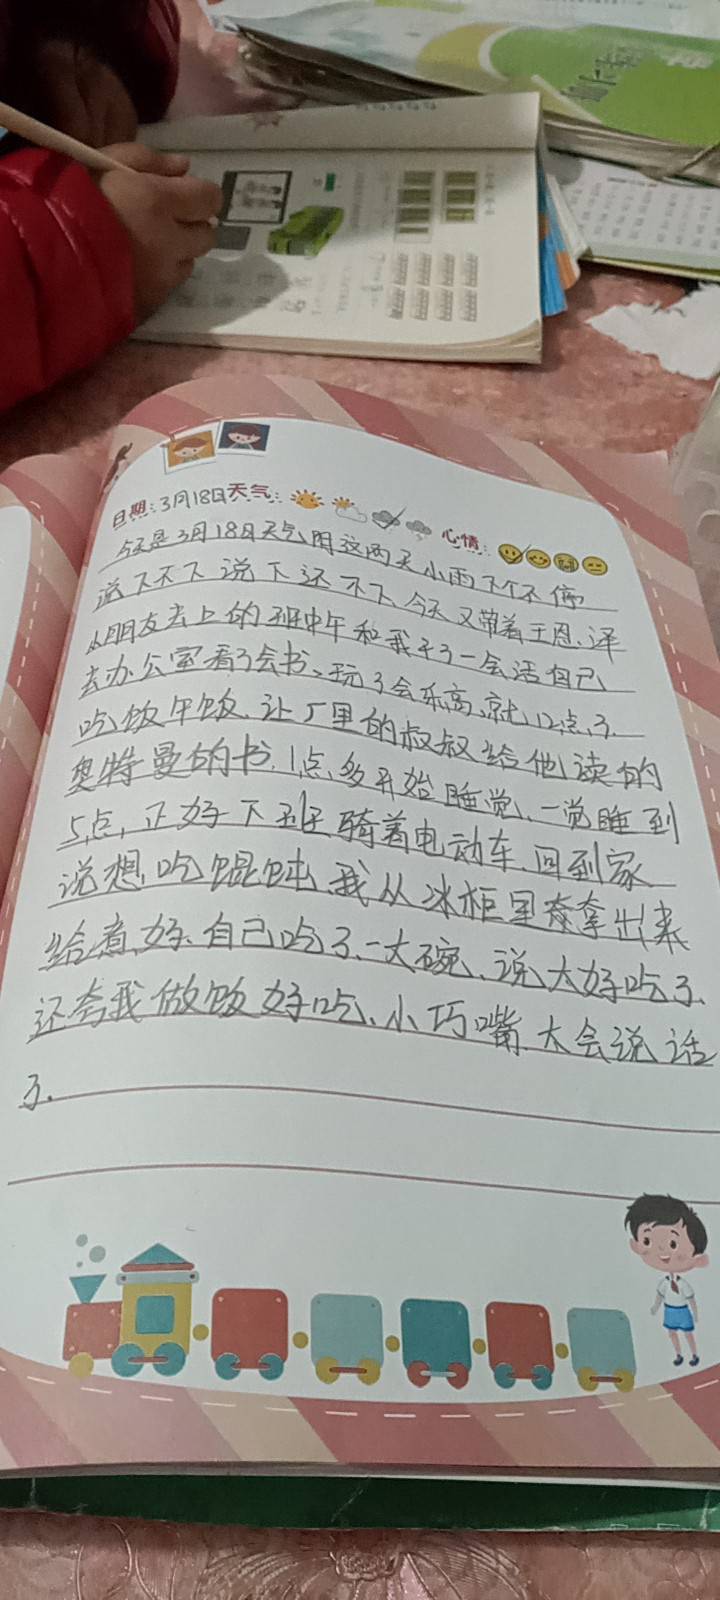 日期:3月18日天气: 心情:
今天是3月18日天气阴这两天小雨下个不停
说下不下说下还不下、今天又带着王恩泽
小朋友去上的班中午和我干了一会活自己
去办公室看了会书、玩了会乐高、就12点了.
吃饭午饭、让厂里的叔叔给他读的
奥特曼的书.1点多开始睡觉、一觉睡到
5点,正好下班骑着电动车、回到家
说想吃馄饨、我从冰柜里拿出来
给煮好、自己吃了、一大碗、说太好吃了、
还夸我做饭好吃、小巧嘴太会说话
了.